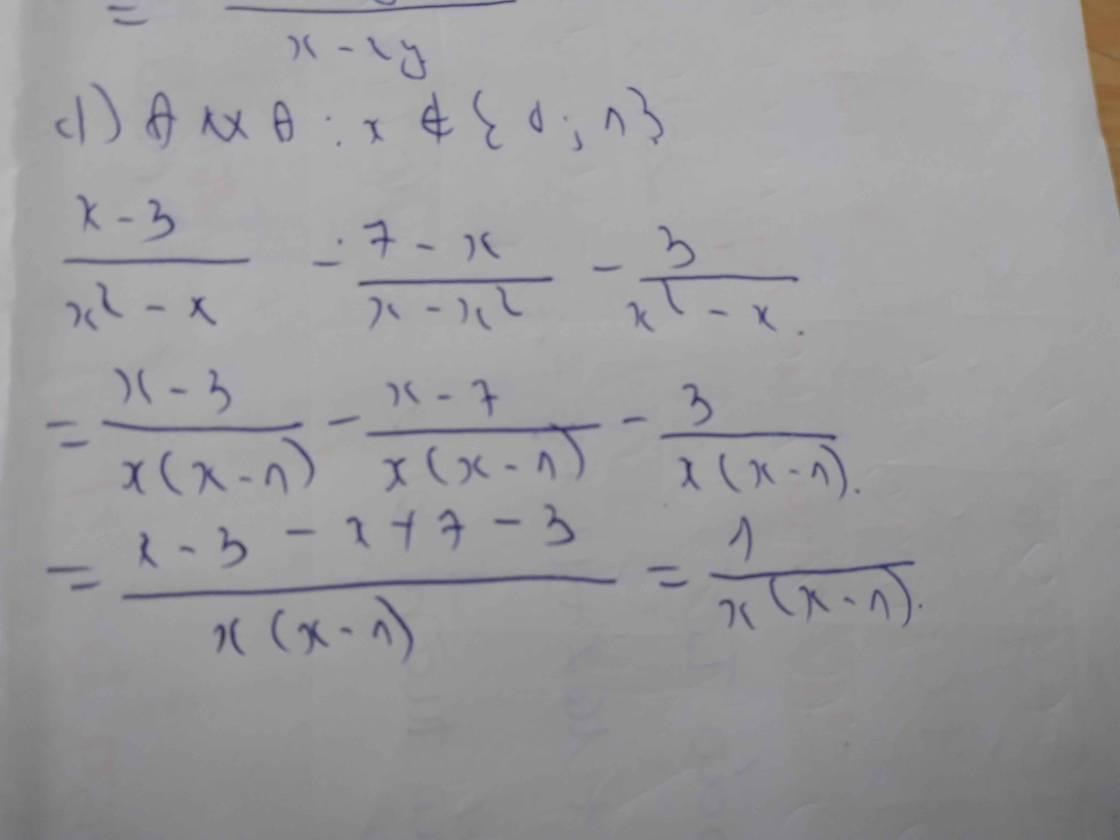 = x - xy
d) ĐKXĐ : x ∉ {0; 1}
\frac{x - 3}{x² - x} - \frac{7 - x}{x - x²} - \frac{3}{x² - x}.
= \frac{x - 3}{x(x - 1)} - \frac{x - 7}{x(x - 1)} - \frac{3}{x(x - 1)}.
= \frac{x - 3 - x + 7 - 3}{x(x - 1)} = \frac{1}{x(x - 1)}.